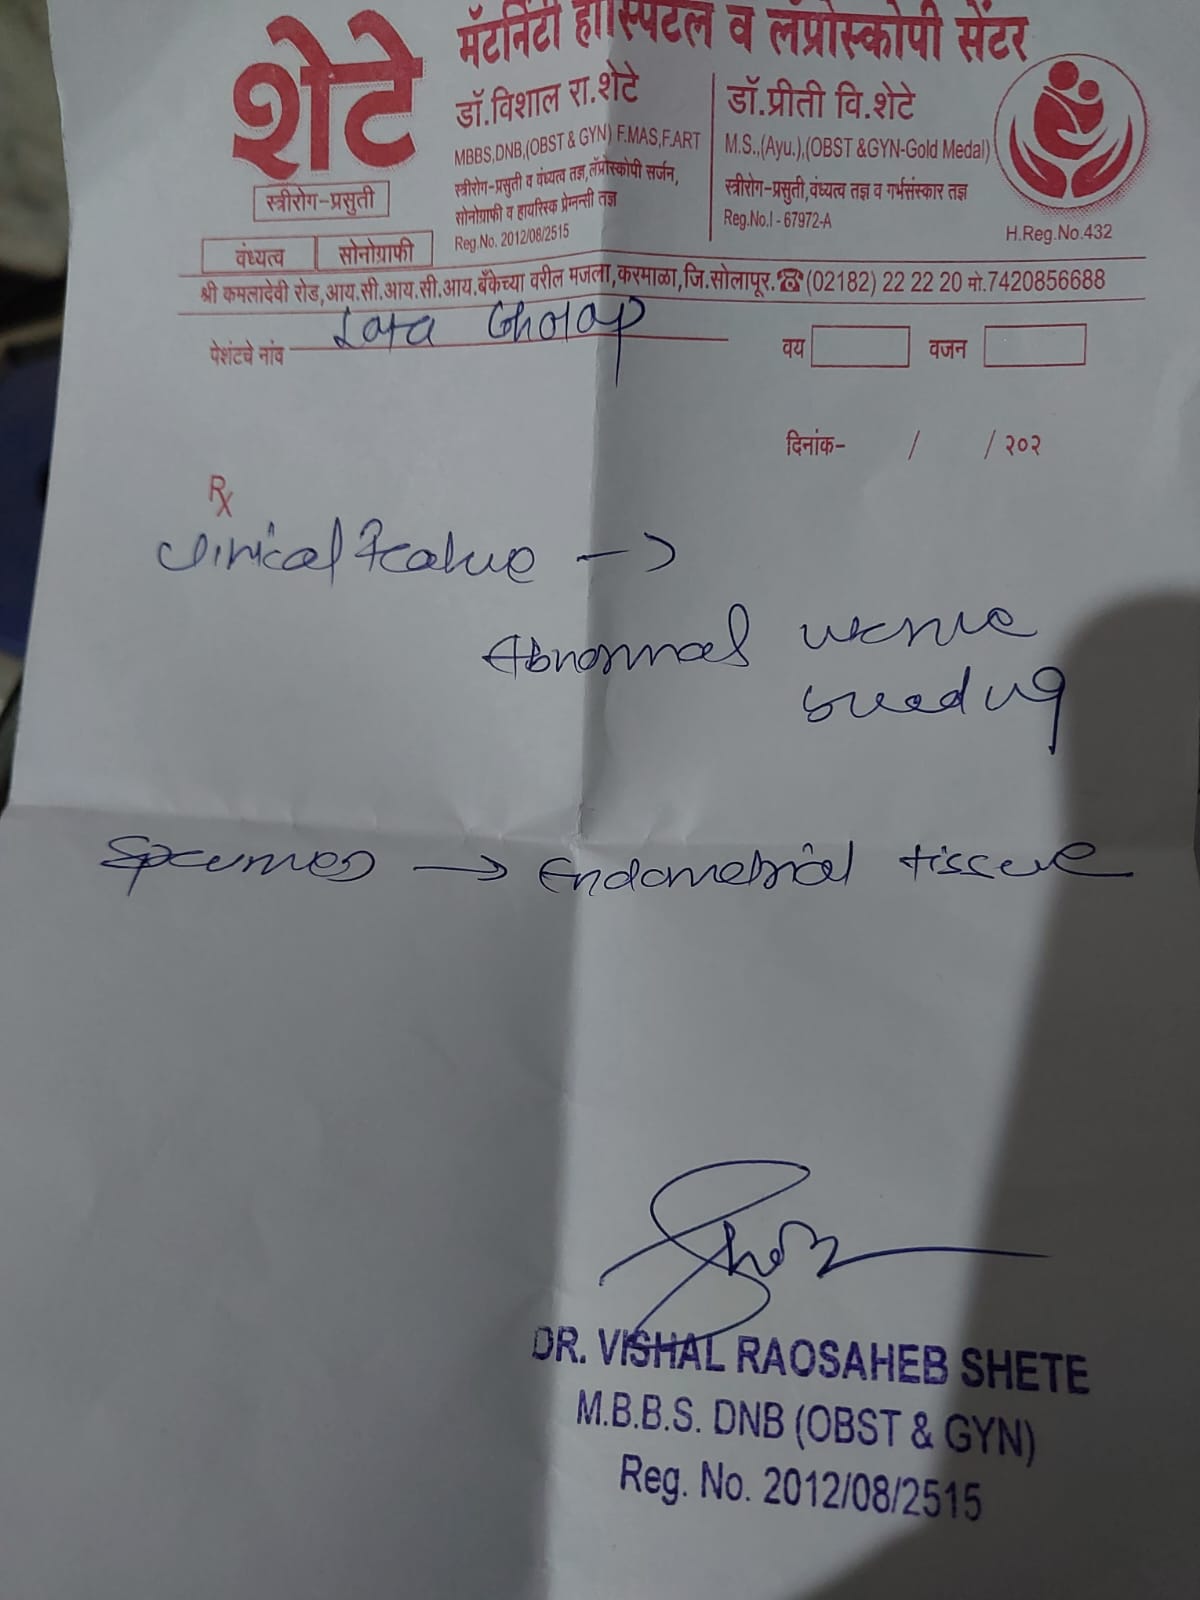 शेटे
मॅटर्निटी हॉस्पिटल व लॅप्रोस्कोपी सेंटर
स्त्रीरोग-प्रसुती
वंध्यत्व
सोनोग्राफी
डॉ.विशाल रा.शेटे
MBBS,DNB,(OBST & GYN) F.MAS,F.ART
स्त्रीरोग-प्रसुती व वंध्यत्व तज्ञ,लॅप्रोस्कोपी सर्जन,
सोनोग्राफी व हायरिस्क प्रेग्नन्सी तज्ञ
Reg.No. 2012/08/2515
डॉ.प्रीती वि.शेटे
M.S.,(Ayu.),(OBST &GYN-Gold Medal)
स्त्रीरोग-प्रसुती,वंध्यत्व तज्ञ व गर्भसंस्कार तज्ञ
Reg.No.I - 67972-A
H.Reg.No.432
श्री कमलादेवी रोड,आय.सी.आय.सी.आय.बँकेच्या वरील मजला,करमाळा,जि.सोलापूर.☎(02182) 22 22 20 मो.7420856688
पेशंटचे नांव Lata Gholap वय वजन
दिनांक- / / २०२
Rx
Clinical Feature →
Abnormal uterine
bleeding
Specimen → Endometrial tissue
DR. VISHAL RAOSAHEB SHETE
M.B.B.S. DNB (OBST & GYN)
Reg. No. 2012/08/2515